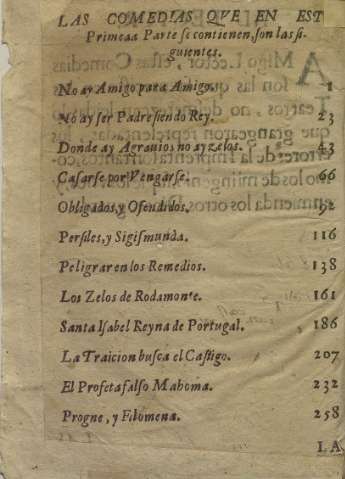 LAS COMEDIAS QVE EN EST
Primeaa Parte se contienen, son las si-
guientes.
No ay Amigo para Amigo. 1
No ay ser Padre siendo Rey. 23
Donde ay Agrauios no ay zelos. 43
Casarse por Vengarse. 66
Obligados, y Ofendidos. 92
Persiles, y Sigismunda. 116
Peligrar en los Remedios. 138
Los Zelos de Rodamonte. 161
Santa Isabel Reyna de Portugal. 186
La Traicion busca el Castigo. 207
El Profeta falso Mahoma. 232
Progne, y Filomena. 258
LA